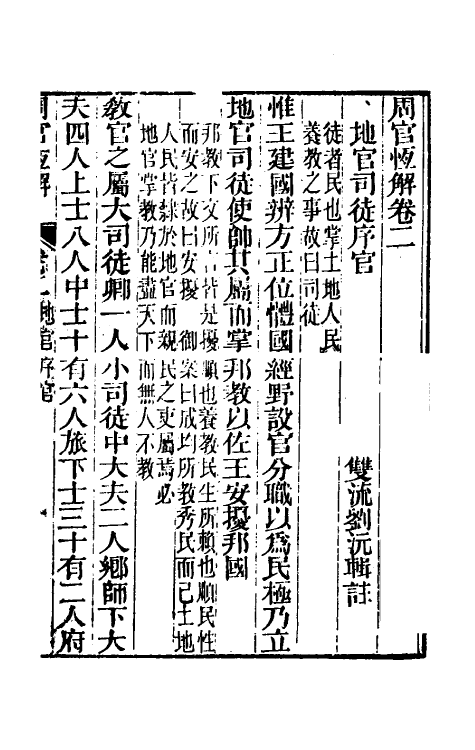 周官恆解卷二
地官司徒序官
雙流劉沅輯註
徒者民也掌土地人民
養教之事故曰司徒
惟王建國辨方正位體國經野設官分職以爲民極乃立
地官司徒使帥其屬而掌邦教以佐王安擾邦國
邦教下文所言皆是擾順也養教民生所賴也順民性
而安之故曰安擾 御案曰成均所教秀民而已土地
人民皆隸於地官而親民之吏屬焉必
地官掌教乃能盡天下而無人不教
教官之屬大司徒卿一人小司徒中大夫二人鄉師下大
夫四人上士八人中士十有六人旅下士三十有二人府
周官恆解
卷二地官序官